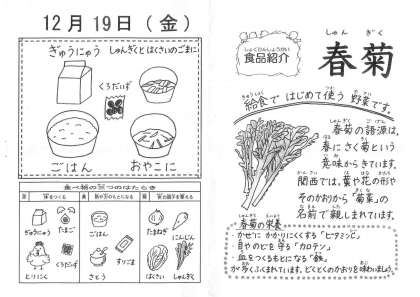 12月19日（金）
ぎゅうにゅう しゅんぎくとはくさいのごまに
くろだいず
ごはん
おやこに
食べ物の三つのはたらき
赤 体をつくる
黄 熱や力のもとになる
緑 体の調子を整える
ぎゅうにゅう
たまご
ごはん
たまねぎ
にんじん
とりにく
くろだいず
さとう
すりごま
はくさい
しゅんぎく
しょくひんしょうかい
食品紹介
しゅん ぎく
春菊
給食ではじめて使う野菜です。
春菊の語源は、
春にさく菊という
意味からきています。
関西では、葉や花の形や
そのかおりから「菊菜」の
名前で親しまれています。
春菊の栄養
かぜにかかりにくくする「ビタミンC」
目やのどを守る「カロテン」
血をつくるもとになる「鉄」
が多くふくまれています。どくとくのかおりを味わいましょう。